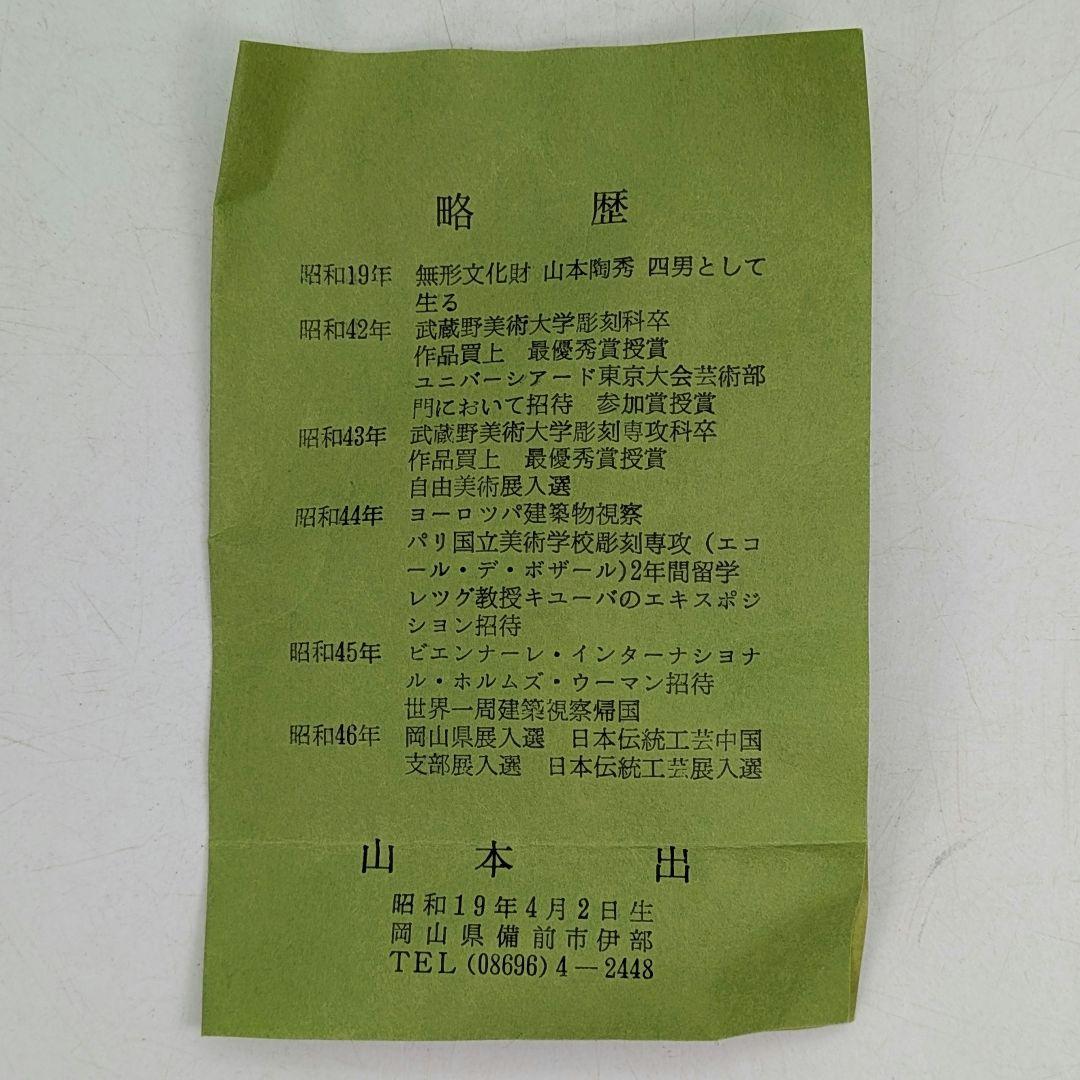 略 歴
昭和19年 無形文化財 山本陶秀 四男として
生る
昭和42年 武蔵野美術大学彫刻科卒
作品買上 最優秀賞授賞
ユニバーシアード東京大会芸術部
門において招待 参加賞授賞
昭和43年 武蔵野美術大学彫刻専攻科卒
作品買上 最優秀賞授賞
自由美術展入選
昭和44年 ヨーロツパ建築物視察
パリ国立美術学校彫刻専攻(エコ
ール・デ・ボザール)2年間留学
レツグ教授キユーバのエキスポジ
シヨン招待
昭和45年 ビエンナーレ・インターナシヨナ
ル・ホルムズ・ウーマン招待
世界一周建築視察帰国
昭和46年 岡山県展入選 日本伝統工芸中国
支部展入選 日本伝統工芸展入選
山 本 出
昭和19年4月2日生
岡山県備前市伊部
TEL(08696)4―2448